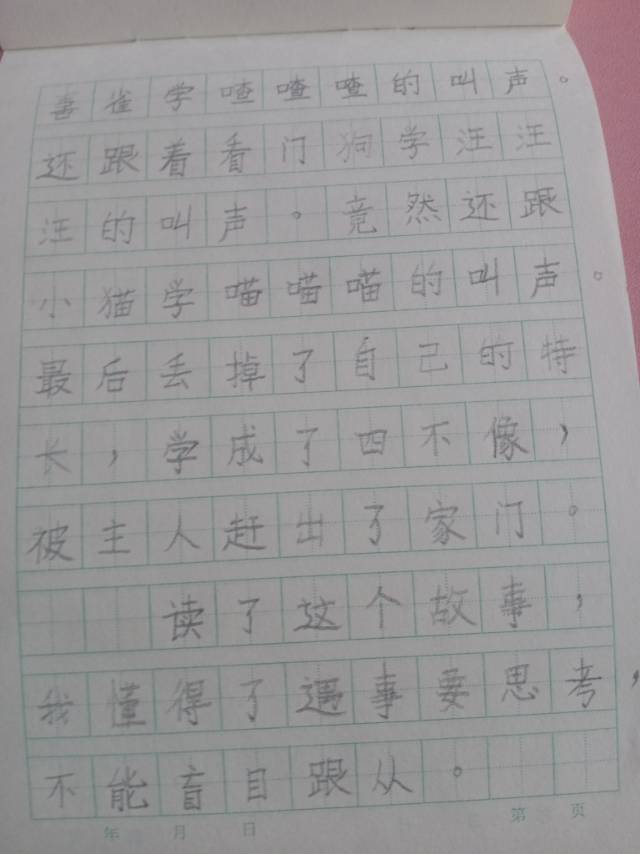 喜雀学喳喳喳的叫声。
还跟着看门狗学汪汪
汪的叫声。竟然还跟
小猫学喵喵喵的叫声。
最后丢掉了自己的特
长，学成了四不像，
被主人赶出了家门。
读了这个故事，
我懂得了遇事要思考，
不能盲目跟从。
年 月 日 第 页